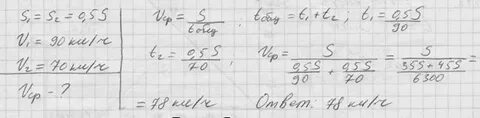 S₁ = S₂ = 0,5S
V₁ = 90 км/ч
V₂ = 70 км/ч
Vср - ?
Vср = S / tобщ ; tобщ = t₁ + t₂ ; t₁ = 0,5S / 90
t₂ = 0,5S / 70 , Vср = S / (0,5S / 90 + 0,5S / 70) = S / ((35S + 45S) / 6300) =
= 78 км/ч Ответ: 78 км/ч